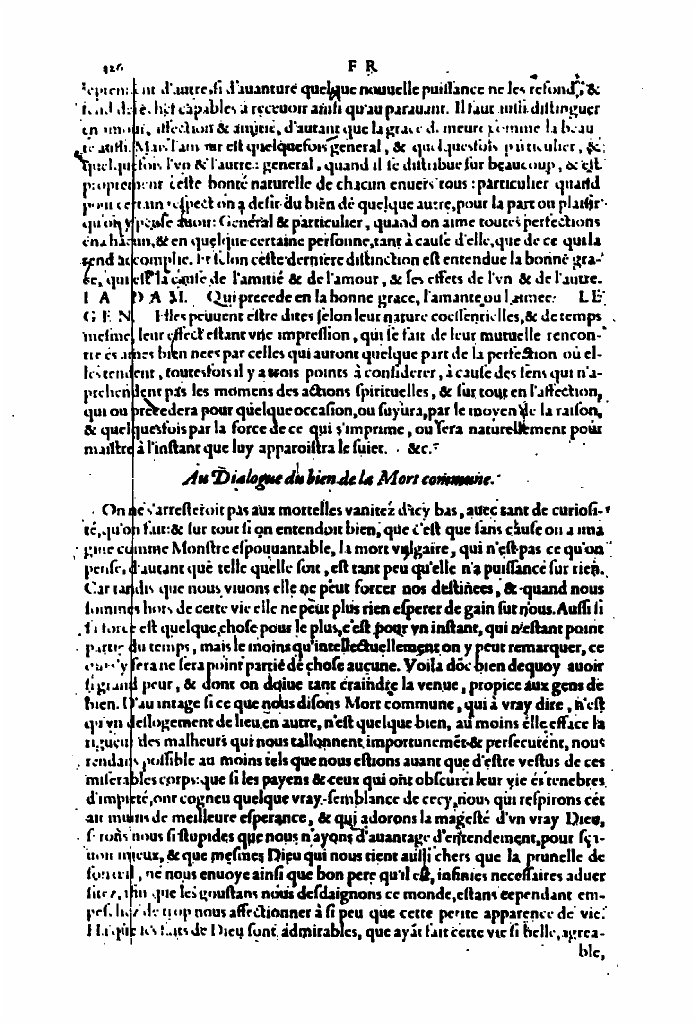 426 F R
d'autre, si d'auanture quelque nouuelle puissance ne les refond, &
capables à receuoir ainsi qu'au parauant. Il faut aussi distinguer
en amour, affection & amitié, d'autant que la grace demeure comme la beau
té aussi. Mais l'amour est quelquefois general, & quelquesfois particulier, &
quelquesfois l'vn & l'autre: general, quand il se distribue sur beaucoup, & est
proprement ceste bonté naturelle de chacun enuers tous: particulier quand
pour certain respect on a desir du bien de quelque autre, pour la part ou plaisir
qu'on y pense auoir: General & particulier, quand on aime toutes perfections
en chacun, & en quelque certaine personne, tant à cause d'elle, que de ce qui la
rend accomplie. Et selon ceste derniere distinction est entendue la bonne gra-
ce, qui est la cause de l'amitié & de l'amour, & ses effets de l'vn & de l'autre.
LA DAM. Qui precede en la bonne grace, l'amante ou l'aimee. LE
GEN. Elles peuuent estre dites selon leur nature coessentielles, & de temps
mesme, leur effect estant vne impression, qui se fait de leur mutuelle rencon-
tre és ames bien nees par celles qui auront quelque part de la perfection où el-
les tendent, toutesfois il y a trois points à considerer, à cause des sens qui n'a-
prehendent pas les momens des actions spirituelles, & sur tout en l'affection,
qui ou precedera pour quelque occasion, ou suyura, par le moyen de la raison,
& quelquesfois par la force de ce qui s'imprime, ou sera naturellement pour
maistre à l'instant que luy apparoistra le suiet. &c.
Au Dialogue du bien de la Mort commune.
On ne s'arresteroit pas aux mortelles vanitez d'icy bas, auec tant de curiosi-
té, qu'on fait: & sur tout si on entendoit bien, que c'est que sans cause on a ima
giné comme Monstre espouuantable, la mort vulgaire, qui n'est pas ce qu'on
pense, d'autant que telle quelle soit, est tant peu qu'elle n'a puissance sur rien.
Car tandis que nous viuons elle ne peut forcer nos destinees, & quand nous
sommes hors de cette vie elle ne peut plus rien esperer de gain sur nous. Aussi si
sa force est quelque chose pour le plus, c'est pour vn instant, qui n'estant point
partie du temps, mais le moins qu'intellectuellement on y peut remarquer, ce
sera ne sera point partie de chose aucune. Voila dõc bien dequoy auoir
si grand peur, & dont on doiue tant craindre la venue, propice aux gens de
bien. D'auantage si ce que nous disons Mort commune, qui à vray dire, n'est
qu'vn deslogement de lieu en autre, n'est quelque bien, au moins elle efface la
rigueur des malheurs qui nous tallonnent importunemẽt & persecutent, nous
rendans possible au moins tels que nous estions auant que d'estre vestus de ces
miserables corps: que si les payens & ceux qui ont obscurci leur vie és tenebres
d'impieté, ont cogneu quelque vray-semblance de cecy, nous qui respirons cét
air muns de meilleure esperance, & qui adorons la magesté d'vn vray Dieu,
serons nous si stupides que nous n'ayons d'auantage d'entendement, pour sça-
uoir mieux, & que mesmes Dieu qui nous tient aussi chers que la prunelle de
son œil, ne nous enuoye ainsi que bon pere qu'il est, infinies necessaires aduer
sitez, afin que les goustans nous desdaignons ce monde, estans cependant em-
peschez de trop nous affectionner à si peu que cette petite apparence de vie.
Ha que les faits de Dieu sont admirables, que ayãt fait cette vie si belle, agrea-
ble,